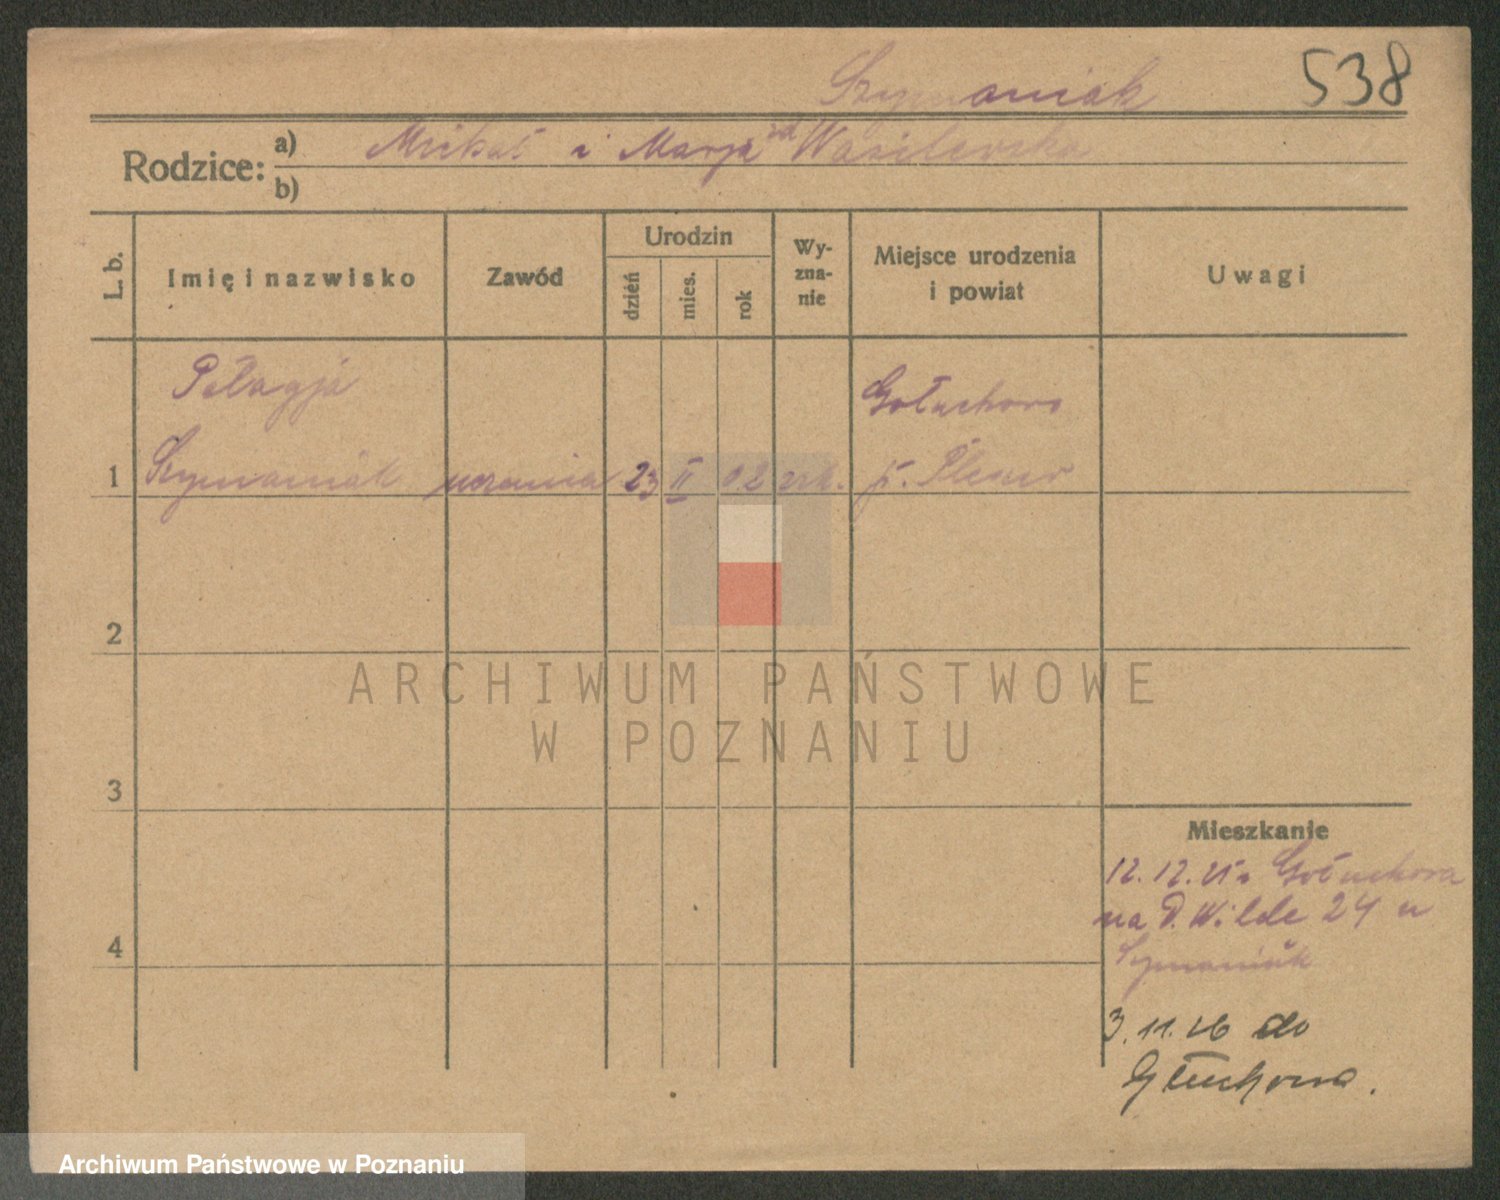 Szymaniak 538
Rodzice: a) Michał i Marja zd Wasilewska
b)
L. b. Imię i nazwisko Zawód Urodzin dzień mies. rok Wy-zna-nie Miejsce urodzenia i powiat Uwagi
Pelagja Gołuchowo
1 Szymaniak uczenica 23 II 02 rzk. p. Pleszew
2
ARCHIWUM PAŃSTWOWE
W POZNANIU
3
Mieszkanie
12.12.25 z Gołuchowa
na D. Wilde 24 u
4
Szymaniak
3.11.26 do
Głuchowa.
Archiwum Państwowe w Poznaniu